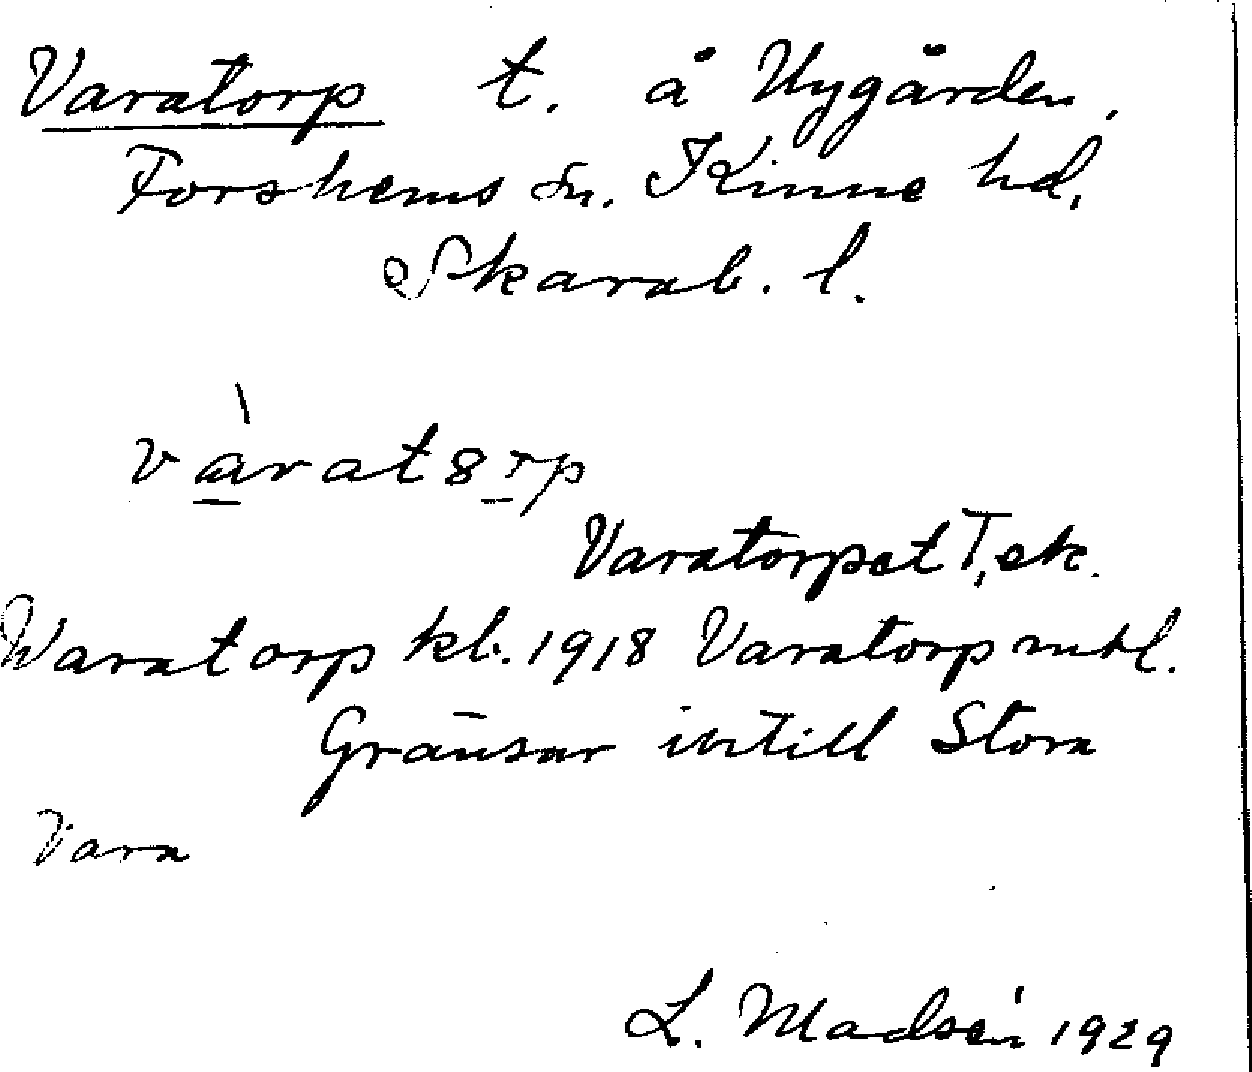 Varatorp t. å Nygården,
Forshems sn. Kinne hd,
Skarab. l.
vàrat8rp
Varatorpet T, ek.
Waratorp kb. 1918 Varatorp mtl.
Gränsar intill Stora
Vara
L. Madsén 1929